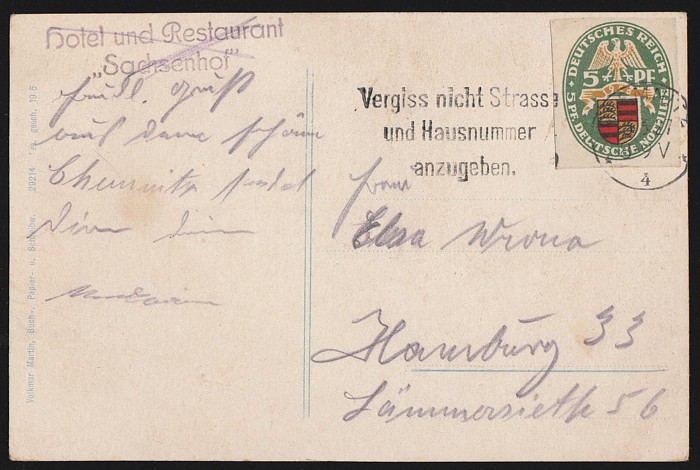 Hotel und Restaurant
"Sachsenhof"
Gruß
aus dem schönen
Chemnitz sendet
Dir
Vergiss nicht Strasse
und Hausnummer
anzugeben.
DEUTSCHES REICH
5 PF
5 PF. DEUTSCHE NOTHILFE
4
Frau
Elsa Wrona
Hamburg 33
Lämmersieth 56
Volkmar Martin, Buch-, Papier- u. Schreibw. 29214